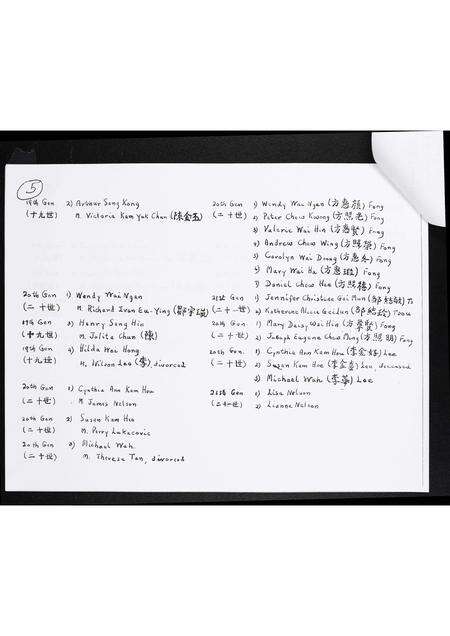 5
19th Gen 2) Arthur Song Kong 20th Gen 1) Wendy Wai Ngan (方惠顏) Fong
(十九世) M. Victoria Kam Yuk Chan (陳金玉) (二十世) 2) Peter Chow Kwong (方照光) Fong
3) Valerie Wai Hin (方惠賢) Fong
4) Andrew Chow Wing (方照榮) Fong
5) Carolyn Wai Doung (方惠冬) Fong
6) Mary Wai Ha (方惠) Fong
7) Daniel Chow Hee (方照) Fong
20th Gen 1) Wendy Wai Ngan 21st Gen 1) Jennifer Christine Gei Mun (鄒敏)
(二十世) M. Richard Ivan Eu-Ying (鄒) (二十一世) 2) Katherine Alicia Gei (鄒) Tsou
19th Gen 3) Henry Song Hin 20th Gen 1) Mary Daisy Wai Hin (方賢) Fong
(十九世) M. Jolita Chun (陳) (二十世) 2) Joseph Eugene Chow Ming (方照明) Fong
19th Gen 4) Hilda Wai Hong 20th Gen 1) Cynthia Ann Kam How (李金好) Lee
(十九世) M. Wilson Lee (李), divorced (二十世) 2) Susan Kam Hee (李金喜) Lee, deceased
3) Michael Wah (李華) Lee
20th Gen 1) Cynthia Ann Kam How 21st Gen 1) Lisa Nelson
(二十世) M. James Nelson (二十一世) 2) Lianne Nelson
20th Gen 2) Susan Kam Hee
(二十世) M. Perry Lukacovic
20th Gen 3) Michael Wah
(二十世) M. Theresa Tan, divorced